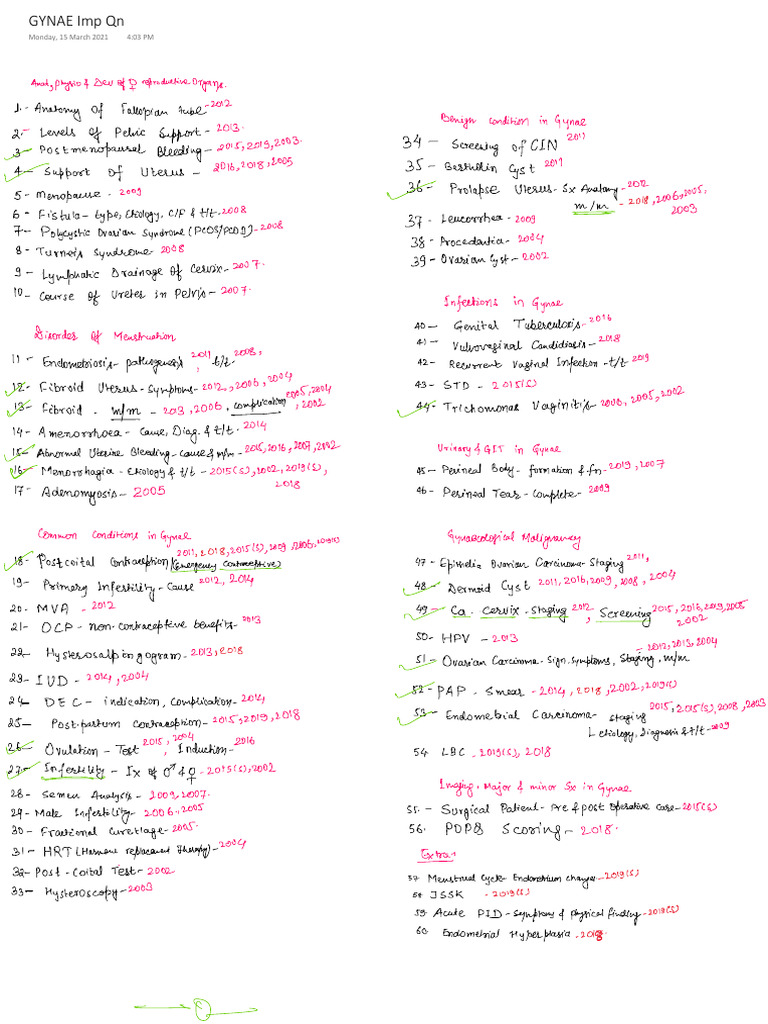 GYNAE Imp Qn
Monday, 15 March 2021 4:03 PM
Anat, physio & Dev of ♀ reproductive Organs.
1.- Anatomy of Fallopian tube - 2012
2.- Levels of Pelvic Support - 2013.
3 - Postmenopausal Bleeding - 2015, 2013, 2003.
4 - Support of Uterus - 2016, 2018, 2005
5 - Menopause - 2009
6 - Fistula - type, Etiology, C/F & t/t - 2008
7 - Polycystic Ovarian Syndrome (PCOS/PCOD) - 2008
8 - Turner's Syndrome - 2008
9 - Lymphatic Drainage of Cervix - 2007.
10 - Course of Ureter in Pelvis - 2007.
Disorder of Menstruation
11 - Endometriosis - pathogenesis 2011, t/t - 2008,
12 - Fibroid Uterus - Symptoms - 2012, 2006, 2004
13 - Fibroid - m/m - 2013, 2006, complication 2005, 2004, 2002
14 - Amenorrhoea - Cause, Diag. & t/t - 2014
15 - Abnormal Uterine Bleeding - cause & m/m - 2015, 2016, 2007, 2002
16 - Menorrhagia - Etiology & t/t - 2015(s), 2002, 2019(s), 2018
17 - Adenomyosis - 2005
Common Conditions in Gynae
18 - Postcoital Contraception (Emergency Contraceptive) 2011, 2018, 2015(s), 2009, 2006,
19 - Primary Infertility - Cause 2012, 2014
20. MVA - 2012
21 - OCP - non-contraceptive benefits - 2013
22 - Hysterosalpingogram - 2013, 2018
23 - IUD - 2014, 2004
24 - DEC - indication, Complication - 2014
25 - Post-partum Contraception - 2015, 2019, 2018
26 - Ovulation - Test 2015, 2004, Induction - 2016
27 - Infertility - Ix of ♂ & ♀ - 2015(s), 2002
28 - Semen Analysis - 2009, 2007.
29 - Male Infertility - 2006, 2005
30 - Fractional Curettage - 2005.
31 - HRT (Hormone replacement Therapy) - 2004
32 - Post - Coital Test - 2002
33 - Hysteroscopy - 2003
Benign Condition in Gynae
34 - Screening of CIN 2011
35 - Bartholin Cyst 2011
36 - Prolapse Uterus - Sx Anatomy - 2012
m/m - 2018, 2006, 2005, 2003
37 - Leucorrhea - 2009
38 - Procedentia - 2004
39 - Ovarian Cyst - 2002
Infections in Gynae
40 - Genital Tuberculosis - 2016
41 - Vulvovaginal Candidiasis - 2018
42 - Recurrent Vaginal Infection - t/t 2019
43 - STD - 2015(s)
44 - Trichomonas Vaginitis - 2005, 2002
Urinary & GIT in Gynae
45 - Perineal Body - formation & fn - 2019, 2007
46 - Perineal Tear - Complete - 2009
Gynaecological Malignancy
47 - Epithelia Ovarian Carcinoma - Staging 2011,
48 - Dermoid Cyst 2011, 2016, 2009, 2008, 2004
49 - Ca. Cervix - Staging 2012, Screening 2015, 2016, 2019, 2008 2002
50 - HPV - 2013
51 - Ovarian Carcinoma - Sign. Symptoms, Staging, m/m - 2012, 2013, 2004
52 - PAP - Smear - 2014, 2018, 2002, 2019(s)
53 - Endometrial Carcinoma - Staging 2015, 2015(s), 2008, 2003
Etiology, Diagnosis & t/t - 2009
54 LBC - 2019(s), 2018
Imaging, Major & minor Sx in Gynae
55 - Surgical Patient - Pre & post Operative Care - 2015(s)
56. POPQ Scoring - 2018.
Extra
57 Menstrual Cycle - Endometrium changes - 2019(s)
58 JSSK - 2019(s)
59 Acute PID - Symptoms & physical finding - 2019(s)
60 Endometrial Hyperplasia - 2018